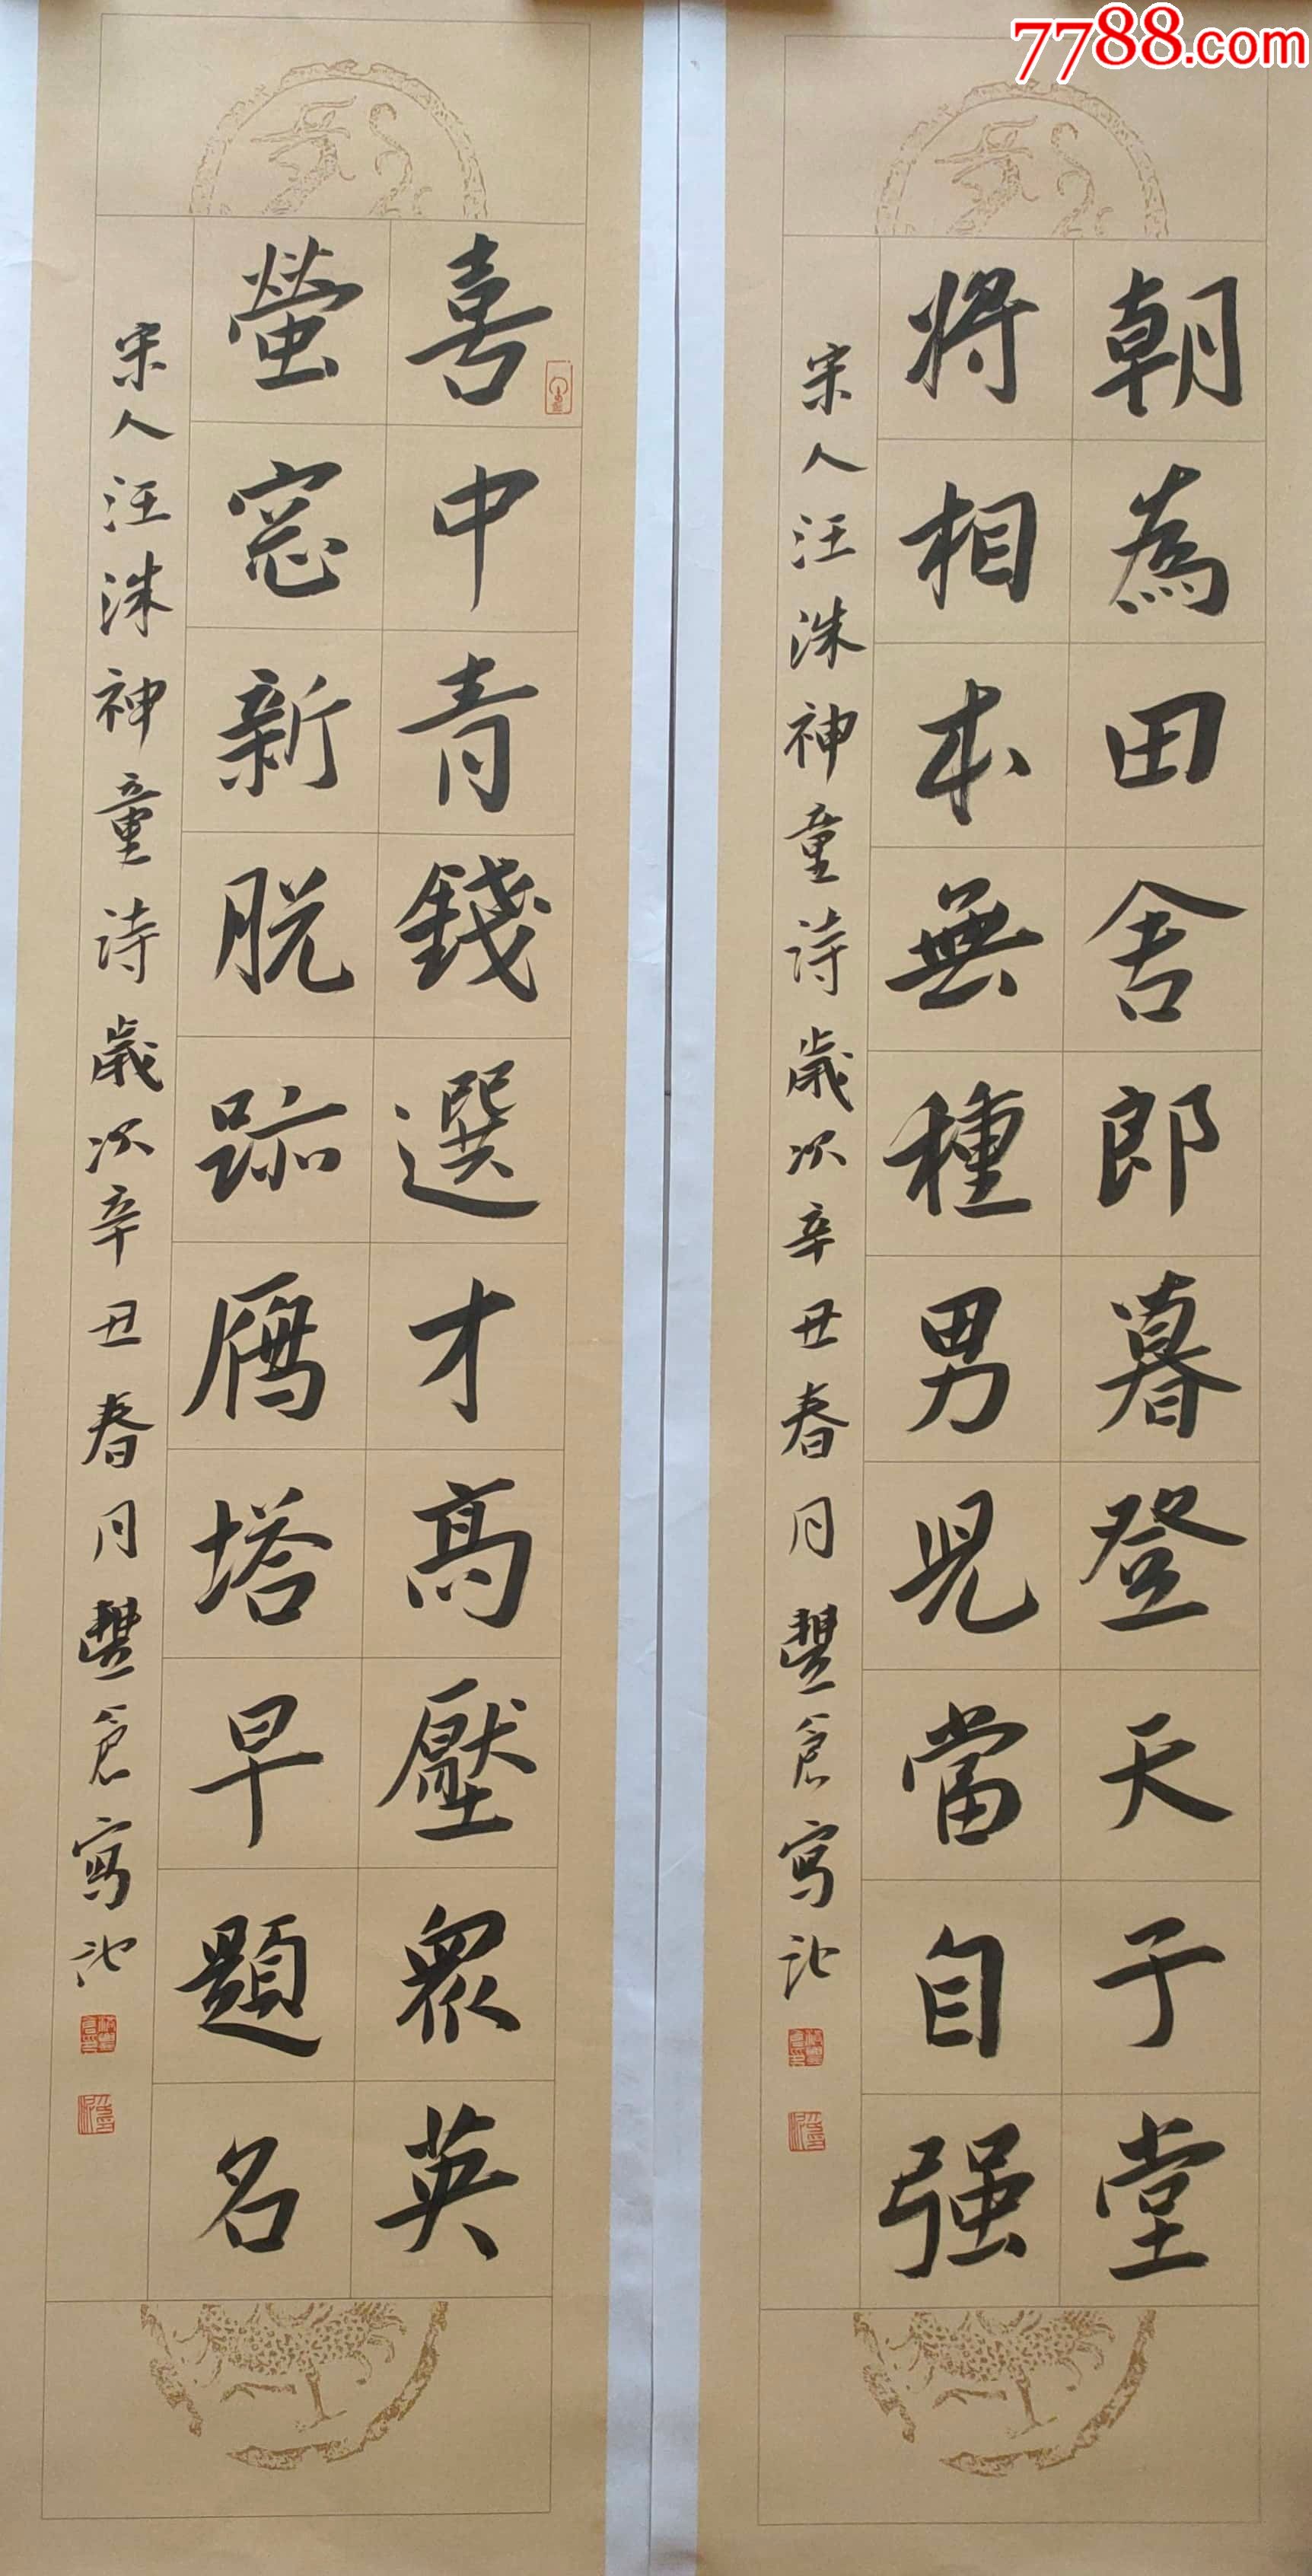 7788.com
朝為田舍郎暮登天子堂
将相本無種男兒當自强
宋人汪洙神童詩歲次辛丑春月豐倉寫記
喜中青錢選才高壓眾英
螢窓新脱跡鴈塔早題名
宋人汪洙神童詩歲次辛丑春月豐倉寫記